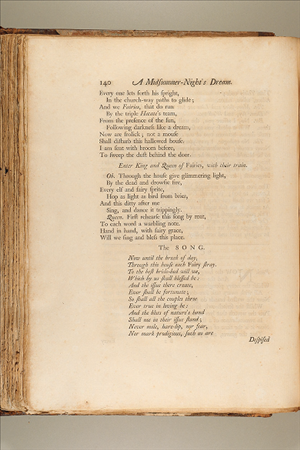 140 A Midsummer-Night's Dream.
Every one lets forth his spright,
In the church-way paths to glide;
And we Fairies, that do run
By the triple Hecate's team,
From the presence of the sun,
Following darkness like a dream,
Now are frolick; not a mouse
Shall disturb this hallowed house.
I am sent with broom before,
To sweep the dust behind the door.
Enter King and Queen of Fairies, with their train.
Ob. Through the house give glimmering light,
By the dead and drowsie fire,
Every elf and fairy sprite,
Hop as light as bird from brier,
And this ditty after me
Sing, and dance it trippingly.
Queen. First rehearse this song by rote,
To each word a warbling note.
Hand in hand, with fairy grace,
Will we sing and bless this place.
The SONG.
Now until the break of day,
Through this house each Fairy stray.
To the best bride-bed will we,
Which by us shall blessed be:
And the issue there create,
Ever shall be fortunate;
So shall all the couples three
Ever true in loving be:
And the blots of nature's hand
Shall not in their issue stand;
Never mole, hare-lip, nor scar,
Nor mark prodigious, such as are
Despised